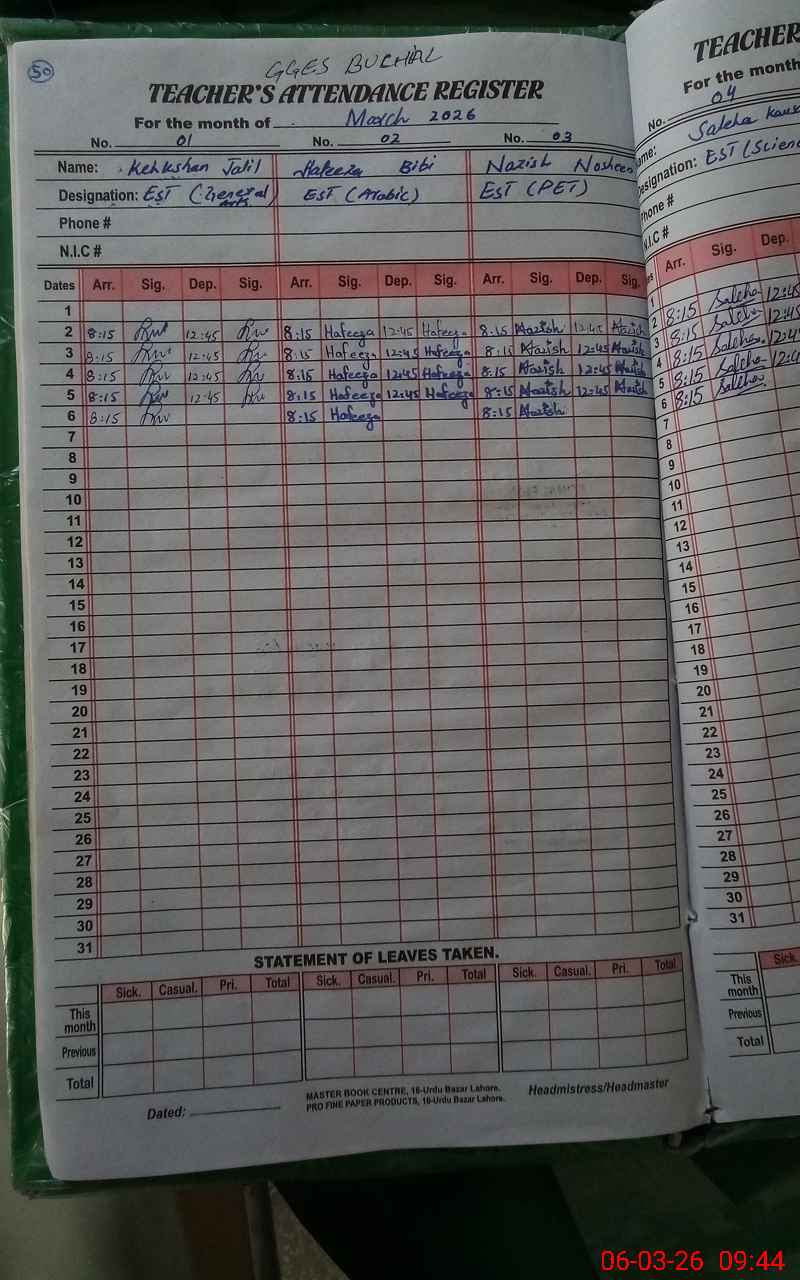 50
GGES BUCHAL
TEACHER'S ATTENDANCE REGISTER
For the month of March 2026
No. 01 No. 02 No. 03
Name: Kehkshan Jalil Hafeeza Bibi Nazish Nosheen
Designation: EST (General Arts) EST (Arabic) EST (PET)
Phone #
N.I.C #
Dates Arr. Sig. Dep. Sig. Arr. Sig. Dep. Sig. Arr. Sig. Dep. Sig.
1
2 8:15 12:45 8:15 Hafeeza 12:45 Hafeeza 8:15 Nazish 12:45 Nazish
3 8:15 12:45 8:15 Hafeeza 12:45 Hafeeza 8:15 Nazish 12:45 Nazish
4 8:15 12:45 8:15 Hafeeza 12:45 Hafeeza 8:15 Nazish 12:45 Nazish
5 8:15 12:45 8:15 Hafeeza 12:45 Hafeeza 8:15 Nazish 12:45 Nazish
6 8:15 8:15 Hafeeza 8:15 Nazish
7
8
9
10
11
12
13
14
15
16
17
18
19
20
21
22
23
24
25
26
27
28
29
30
31
STATEMENT OF LEAVES TAKEN.
Sick. Casual. Pri. Total Sick. Casual. Pri. Total Sick. Casual. Pri. Total
This month
Previous
Total
Dated:
MASTER BOOK CENTRE, 16-Urdu Bazar Lahore.
PRO FINE PAPER PRODUCTS, 16-Urdu Bazar Lahore.
Headmistress/Headmaster
TEACHER
For the month
No. 04
ame: Saleha
esignation: EST (Scien
hone #
.I.C #
Arr. Sig. Dep.
1
2 8:15 Saleha 12:45
3 8:15 Saleha 12:45
4 8:15 Saleha 12:45
5 8:15 Saleha 12:45
6 8:15 Saleha
7
8
9
10
11
12
13
14
15
16
17
18
19
20
21
22
23
24
25
26
27
28
29
30
31
Sick.
This month
Previous
Total
06-03-26 09:44